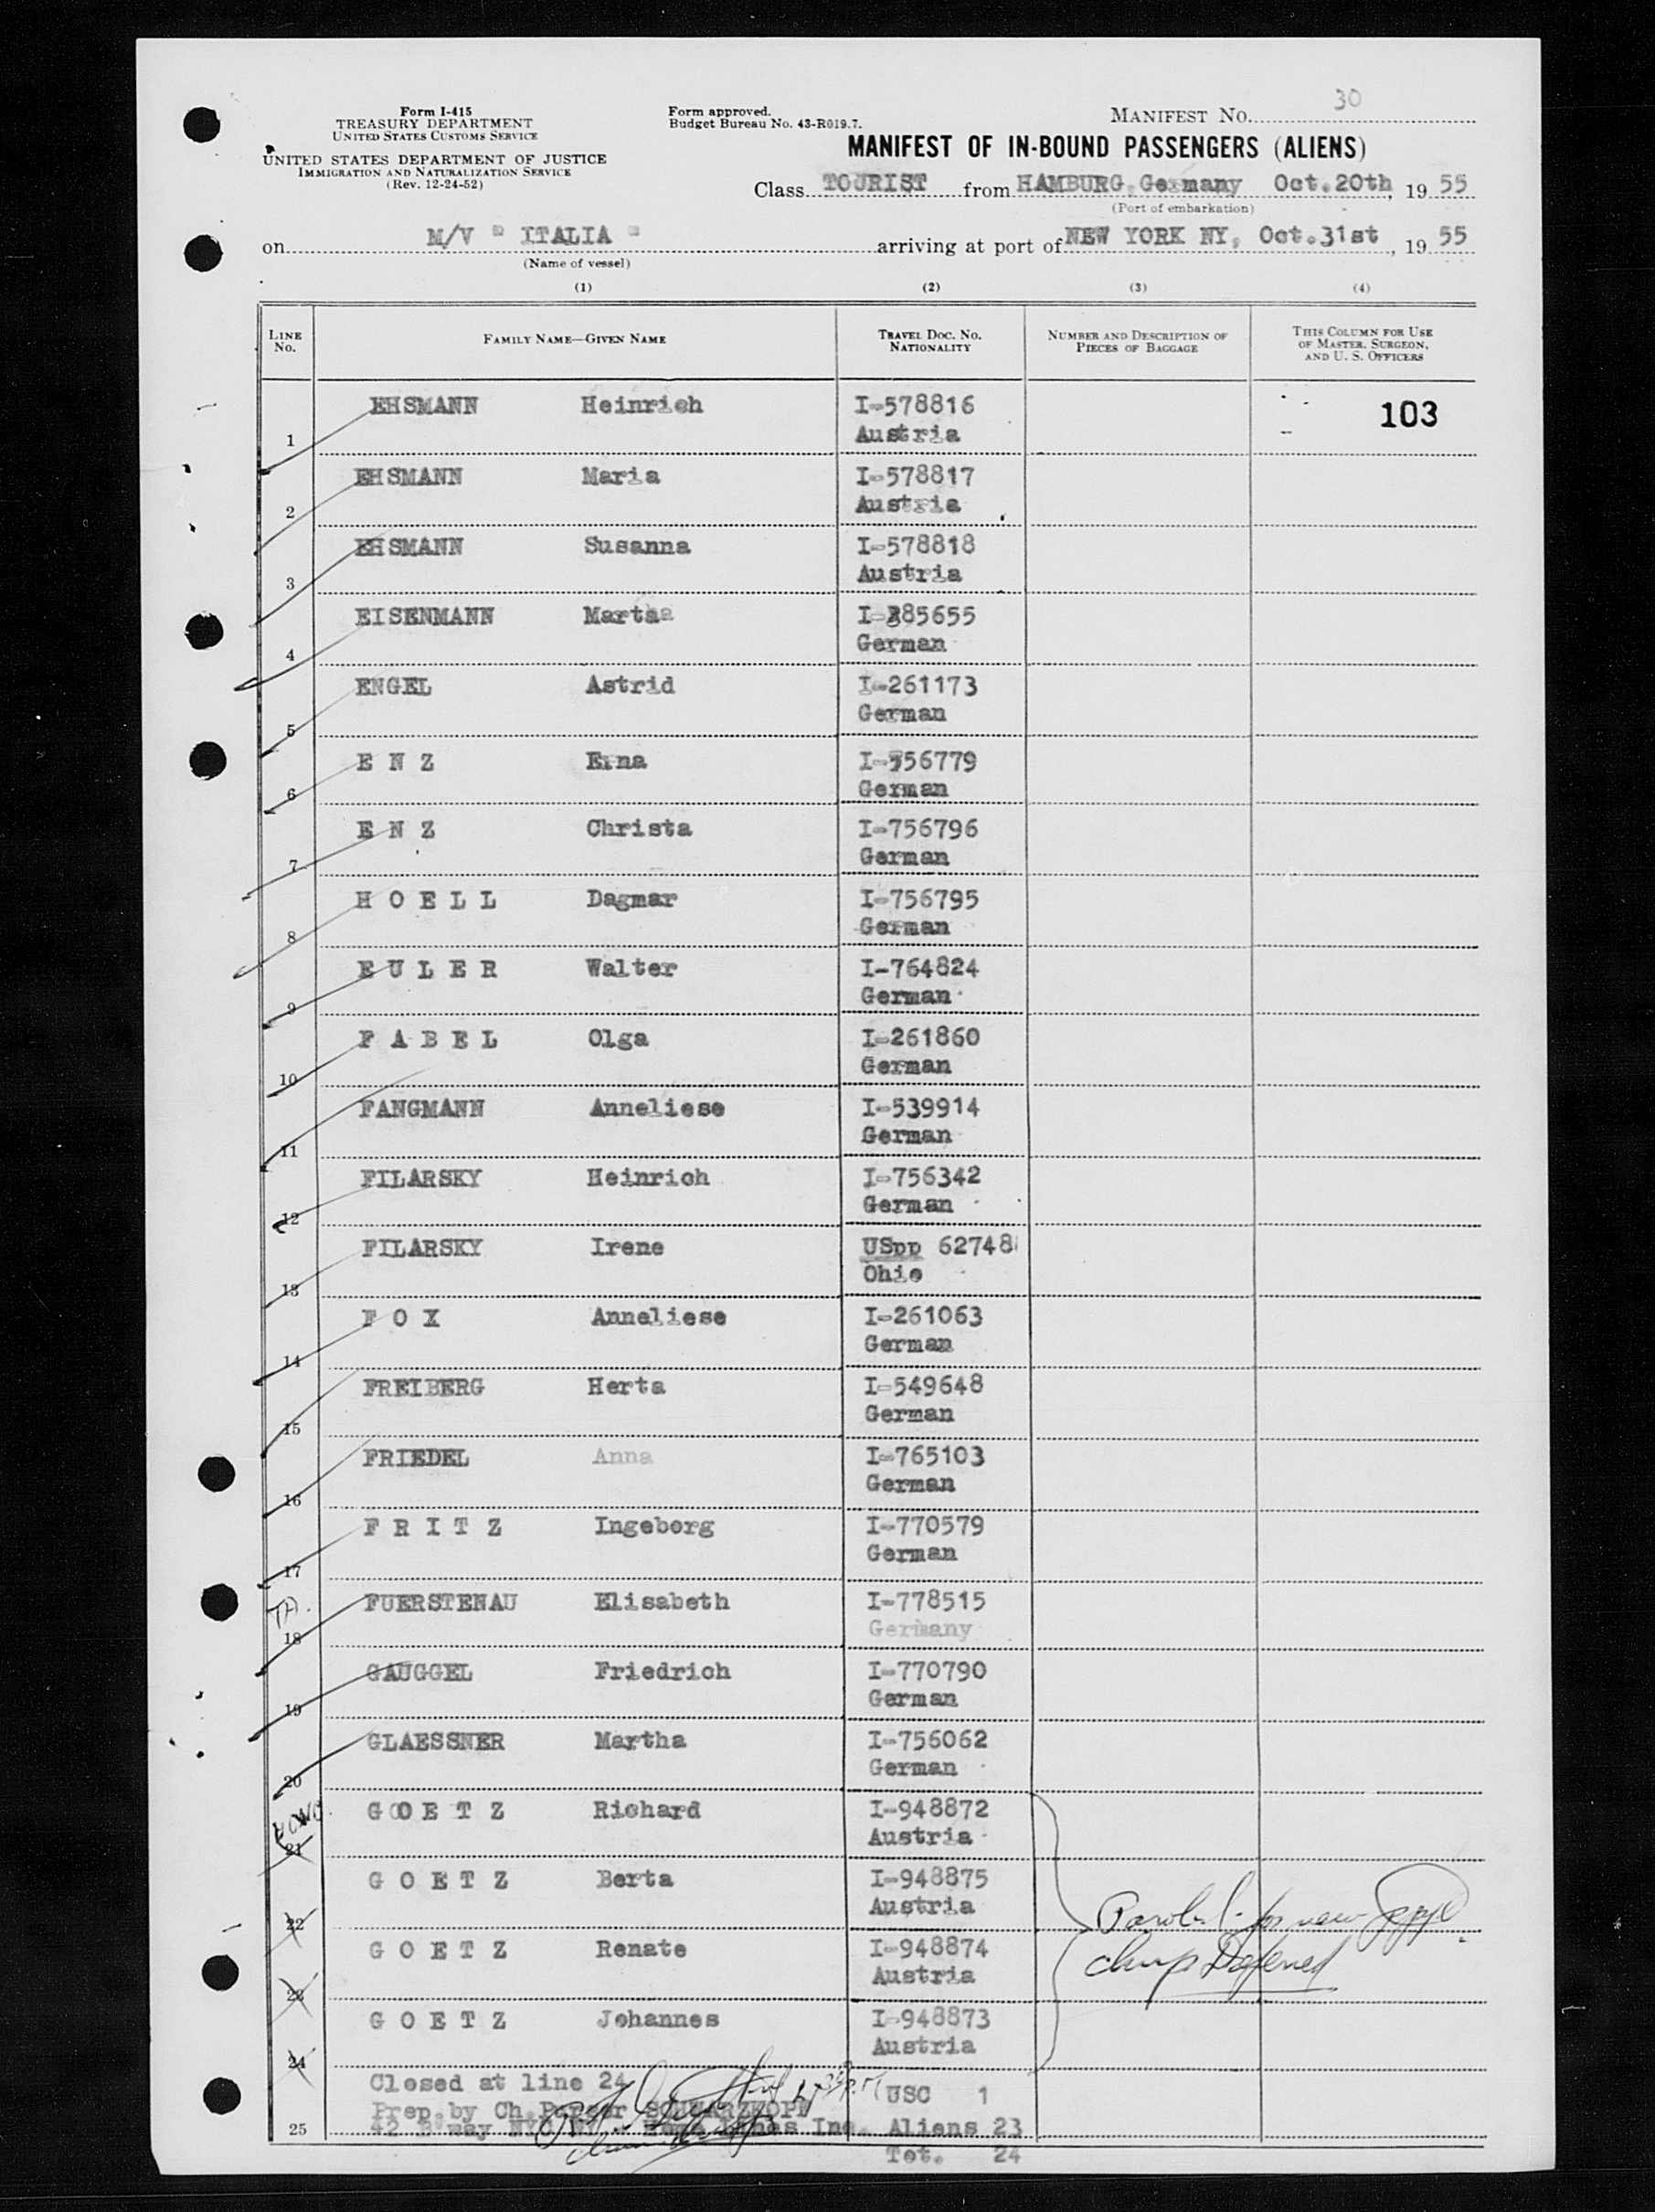 Form I-415
TREASURY DEPARTMENT
UNITED STATES CUSTOMS SERVICE
UNITED STATES DEPARTMENT OF JUSTICE
IMMIGRATION AND NATURALIZATION SERVICE
(Rev. 12-24-52)
Form approved.
Budget Bureau No. 43-R019.7.
MANIFEST NO. 30
MANIFEST OF IN-BOUND PASSENGERS (ALIENS)
Class TOURIST from HAMBURG, Germany Oct.20th, 19 55
(Port of embarkation)
on M/V " ITALIA " arriving at port of NEW YORK NY, Oct.31st, 19 55
(Name of vessel)
(1) (2) (3) (4)
LINE No. FAMILY NAME—GIVEN NAME TRAVEL DOC. NO. NATIONALITY NUMBER AND DESCRIPTION OF PIECES OF BAGGAGE THIS COLUMN FOR USE OF MASTER, SURGEON, AND U. S. OFFICERS
1 EHSMANN Heinrich I-578816 103
Austria
2 EHSMANN Maria I-578817
Austria
3 EHSMANN Susanna I-578818
Austria
4 EISENMANN Martha I-385655
German
5 ENGEL Astrid I-261173
German
6 E N Z Erna I-756779
German
7 E N Z Christa I-756796
German
8 H O E L L Dagmar I-756795
German
9 E U L E R Walter I-764824
German
10 F A B E L Olga I-261860
German
11 FANGMANN Anneliese I-539914
German
12 FILARSKY Heinrich I-756342
German
13 FILARSKY Irene USpp 62748
Ohio
14 F O X Anneliese I-261063
German
15 FREIBERG Herta I-549648
German
16 FRIEDEL Anna I-765103
German
17 F R I T Z Ingeborg I-770579
German
18 FUERSTENAU Elisabeth I-778515
Germany
19 GAUGGEL Friedrich I-770790
German
20 GLAESSNER Martha I-756062
German
21 G O E T Z Richard I-948872
Austria
22 G O E T Z Berta I-948875
Austria
Paroled for new
23 G O E T Z Renate I-948874
Deferred
Austria
24 G O E T Z Johannes I-948873
Austria
Closed at line 24
USC 1
Prep.by Ch.Purser SCHWARZKOPF
25 42 B'way NYC NY - Home Lines Inc. Aliens 23
Tot. 24